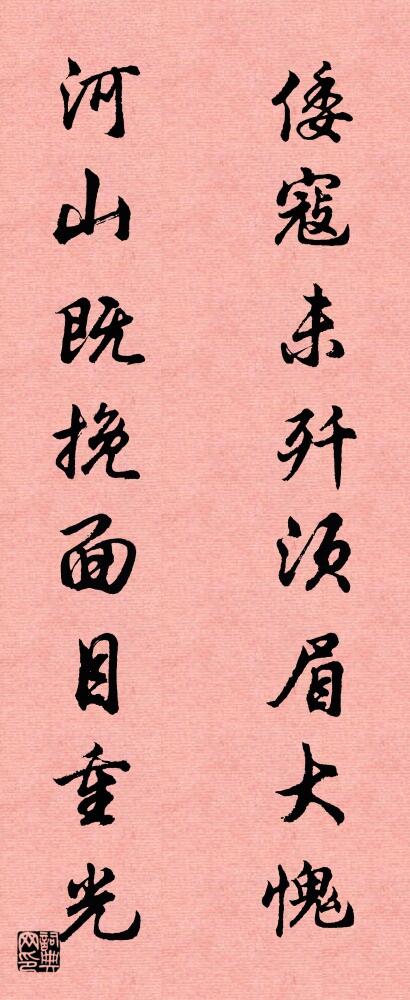 倭寇未歼须眉大愧
河山既挽面目重光
詞典网印